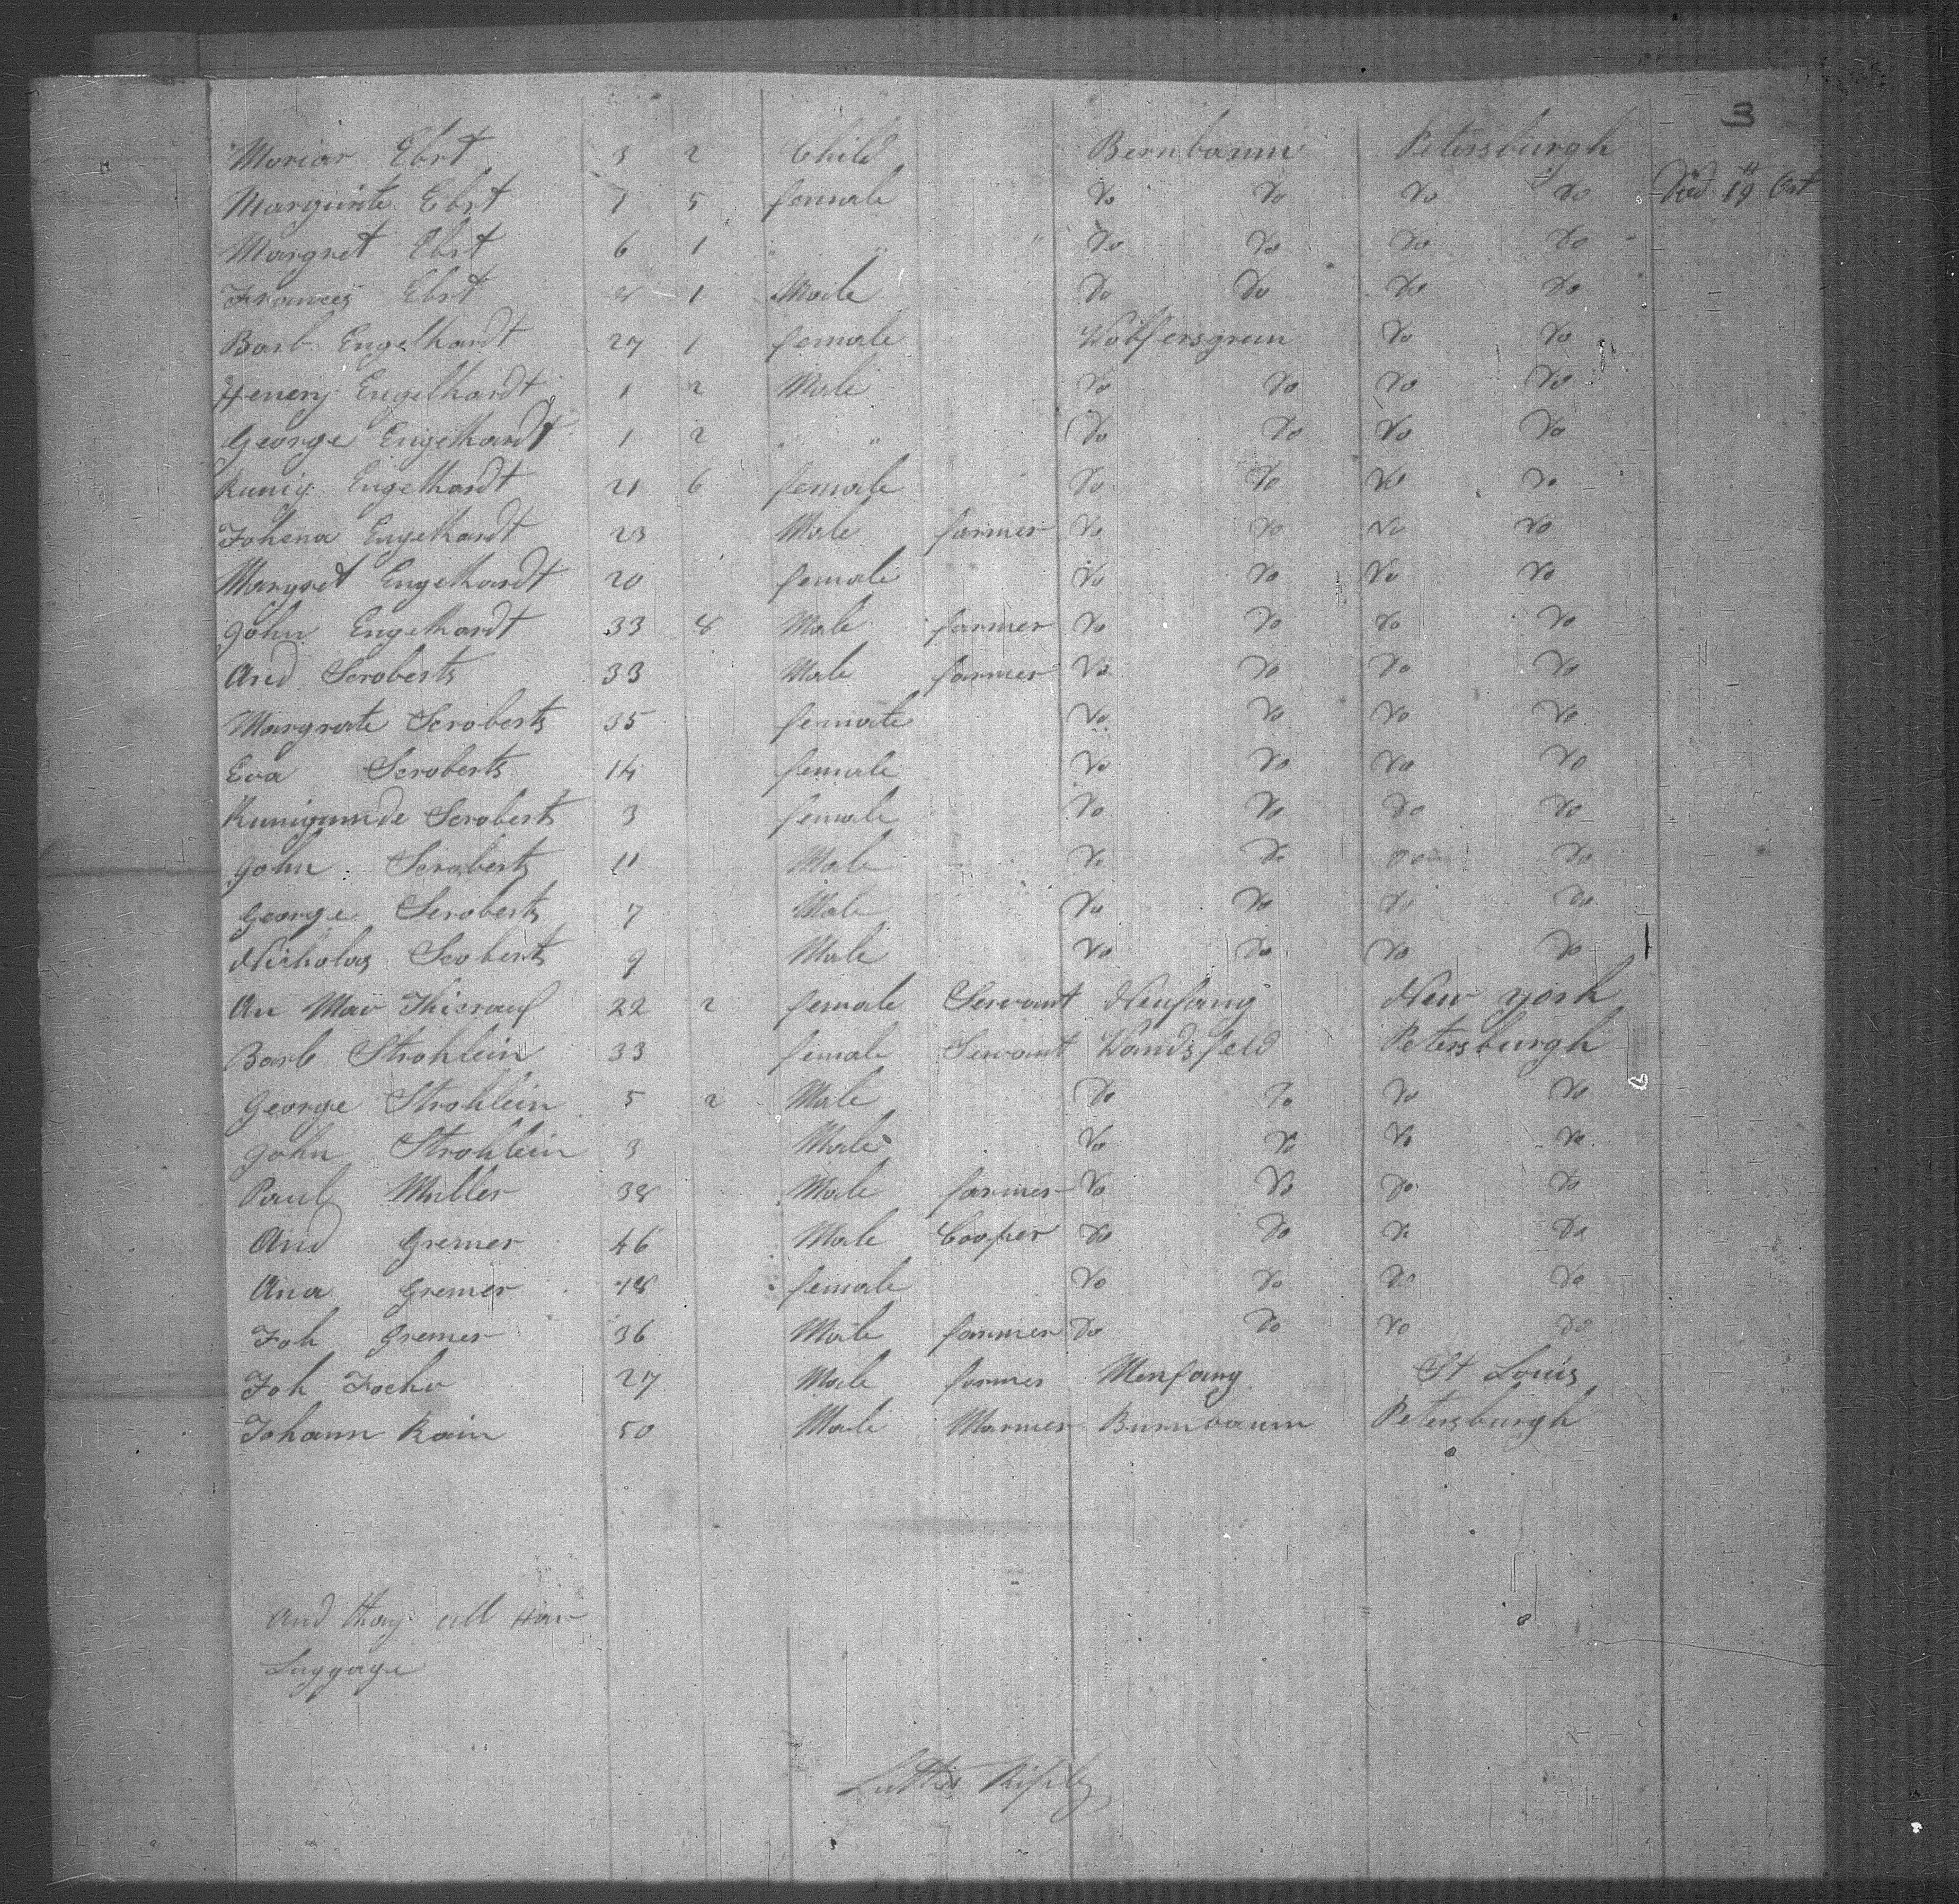 3
Moriar Ebrt 3 2 Child Bernbaum Petersburgh
Margurite Ebrt 7 5 female Do Do Do Do Died 19th Oct
Margret Ebrt 6 1 " " " Do Do Do Do
Frances Ebrt 8 1 Male Do Do Do Do
Barb Engelhardt 27 1 female Wolfersgrun Do Do
Henery Engelhardt 1 2 Male Do Do Do Do
George Engelhardt 1 2 " " Do Do Do Do
Kunig Engelhardt 21 6 female Do Do Do Do
Johena Engelhardt 23 Male farmer Do Do Do Do
Margret Engelhardt 20 female Do Do Do Do
John Engelhardt 33 8 Male farmer Do Do Do Do
And Scroberts 33 Male farmer Do Do Do Do
Margrate Scroberts 35 female Do Do Do Do
Eva Scroberts 14 female Do Do Do Do
Kunigunde Scroberts 3 female Do Do Do Do
John Scroberts 11 Male Do Do Do Do
George Scroberts 7 Male Do Do Do Do
Nicholas Scoberts 9 Male Do Do Do Do
An Mar Thierauf 22 2 female Servant Neufang New york
Barb Strohlein 33 female Servant Wandsfeld Petersburgh
George Strohlein 5 2 Male Do Do Do Do
John Strohlein 3 Male Do Do Do Do
Paul Muller 38 Male farmer Do Do Do Do
And Gremer 46 Male Cooper Do Do Do Do
Ana Gremer 18 female Do Do Do Do
Joh Gremer 36 Male farmer Do Do Do Do
Joh 27 Male farmer St Louis
Johann Rain 50 Male Burnbaum Petersburgh
And thay all Hav
Luggage
Luther Ripley